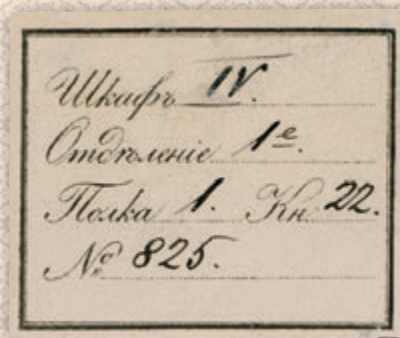 Шкафъ IV.
Отдѣленіе 1е.
Полка 1. Кн. 22.
№ 825.